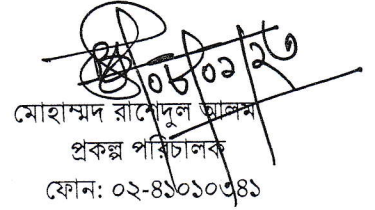 ০৮/০১/২৩
মোহাম্মদ রাশেদুল আলম
প্রকল্প পরিচালক
ফোন: ০২-৪১০১০৩৪১